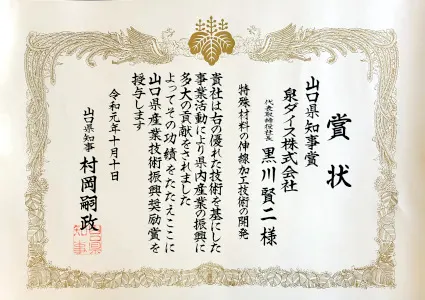 賞状
山口県知事賞
泉ダイス株式会社
代表取締役社長 黒川賢二様
特殊材料の伸線加工技術の開発
貴社は右の優れた技術を基にした
事業活動により県内産業の振興に
多大の貢献をされました
よってその功績をたたえここに
山口県産業技術振興奨励賞を
授与します
令和元年十月十日
山口県知事 村岡嗣政
山口県知事